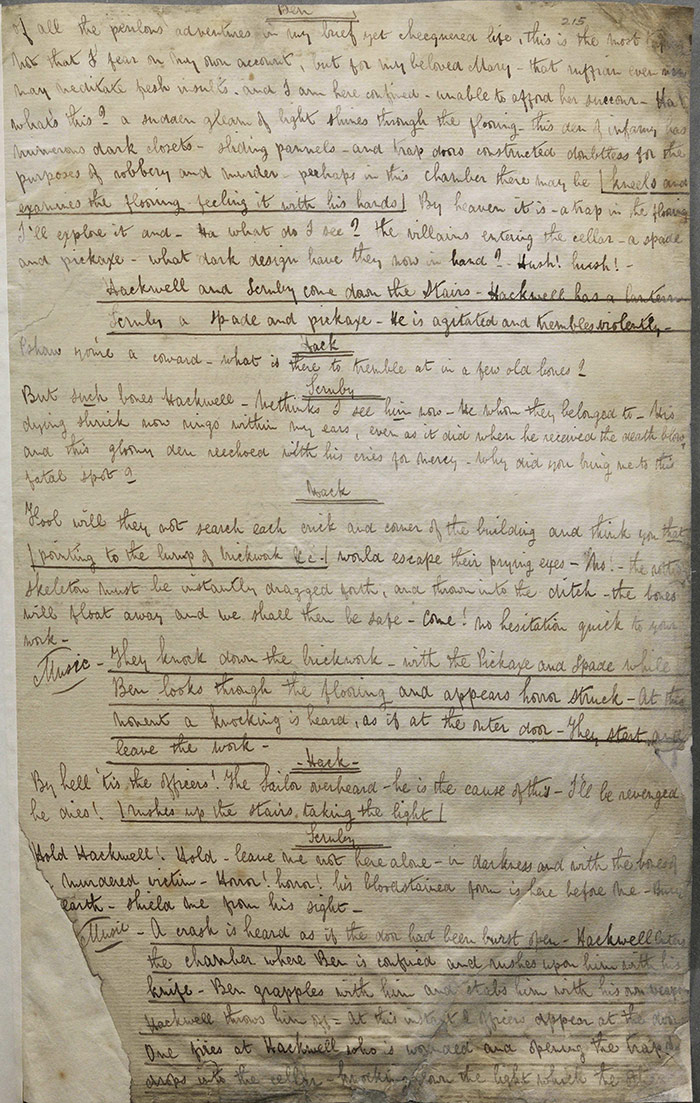 Ben
215
of all the perilous adventures in my brief yet chequered life, this is the most
not that I fear on my own account, but for my beloved Mary - that ruffian even now
may meditate fresh insults. and I am here confined - unable to afford her succour - Ha!
what's this? a sudden gleam of light shines through the flooring - this den of infamy has
numerous dark closets - sliding pannels - and trap doors constructed doubtless for the
purposes of robbery and murder - perhaps in this chamber there may be | kneels and
examines the flooring feeling it with his hands | By heaven it is - a trap in the flooring
I'll explore it and - Ha what do I see? the villains entering the cellar - a spade
and pickaxe - what dark design have they now in hand? - Hush! hush! -
Hackwell and Scruby come down the Stairs - Hackwell has a lantern
Scruby a Spade and pickaxe - He is agitated and trembles violently -
Hack
Pshaw you're a coward - what is there to tremble at in a few old bones?
Scruby
But such bones Hackwell - Methinks I see him now - He whom they belonged to - His
dying shriek now rings within my ears, even as it did when he received the death blow,
and this gloomy den reechoed with his cries for mercy - why did you bring me to this
fatal spot?
Hack
Fool will they not search each crick and corner of the building and think you that
| pointing to the lump of brickwork &c. | would escape their prying eyes - No! - the
skeleton must be instantly dragged forth, and thrown into the ditch - the bones
will float away and we shall then be safe - Come! no hesitation quick to your
work -
Music - They knock down the brickwork - with the Pickaxe and Spade while
Ben looks through the flooring and appears horror struck - At this
moment a knocking is heard, as if at the outer door - They start and
leave the work -
- Hack -
By hell 'tis the officers! The Sailor overheard - he is the cause of this - I'll be revenged
he dies! | rushes up the stairs, taking the light |
Scruby
Hold Hackwell! Hold - leave me not here alone - in darkness and with the bones of
murdered victim - Horror! horror! his bloodstained form is here before me -
earth - shield me from his sight -
Music - A crash is heard as if the door had been burst open - Hackwell enters
the chamber where Ben is confined and rushes upon him with his
knife - Ben grapples with him and stabs him with his own weapon
Hackwell throws him off = At this instant 2 officers appear at the door
One fires at Hackwell who is wounded and opening the trap
drops into the cellar - knocking down the light which the